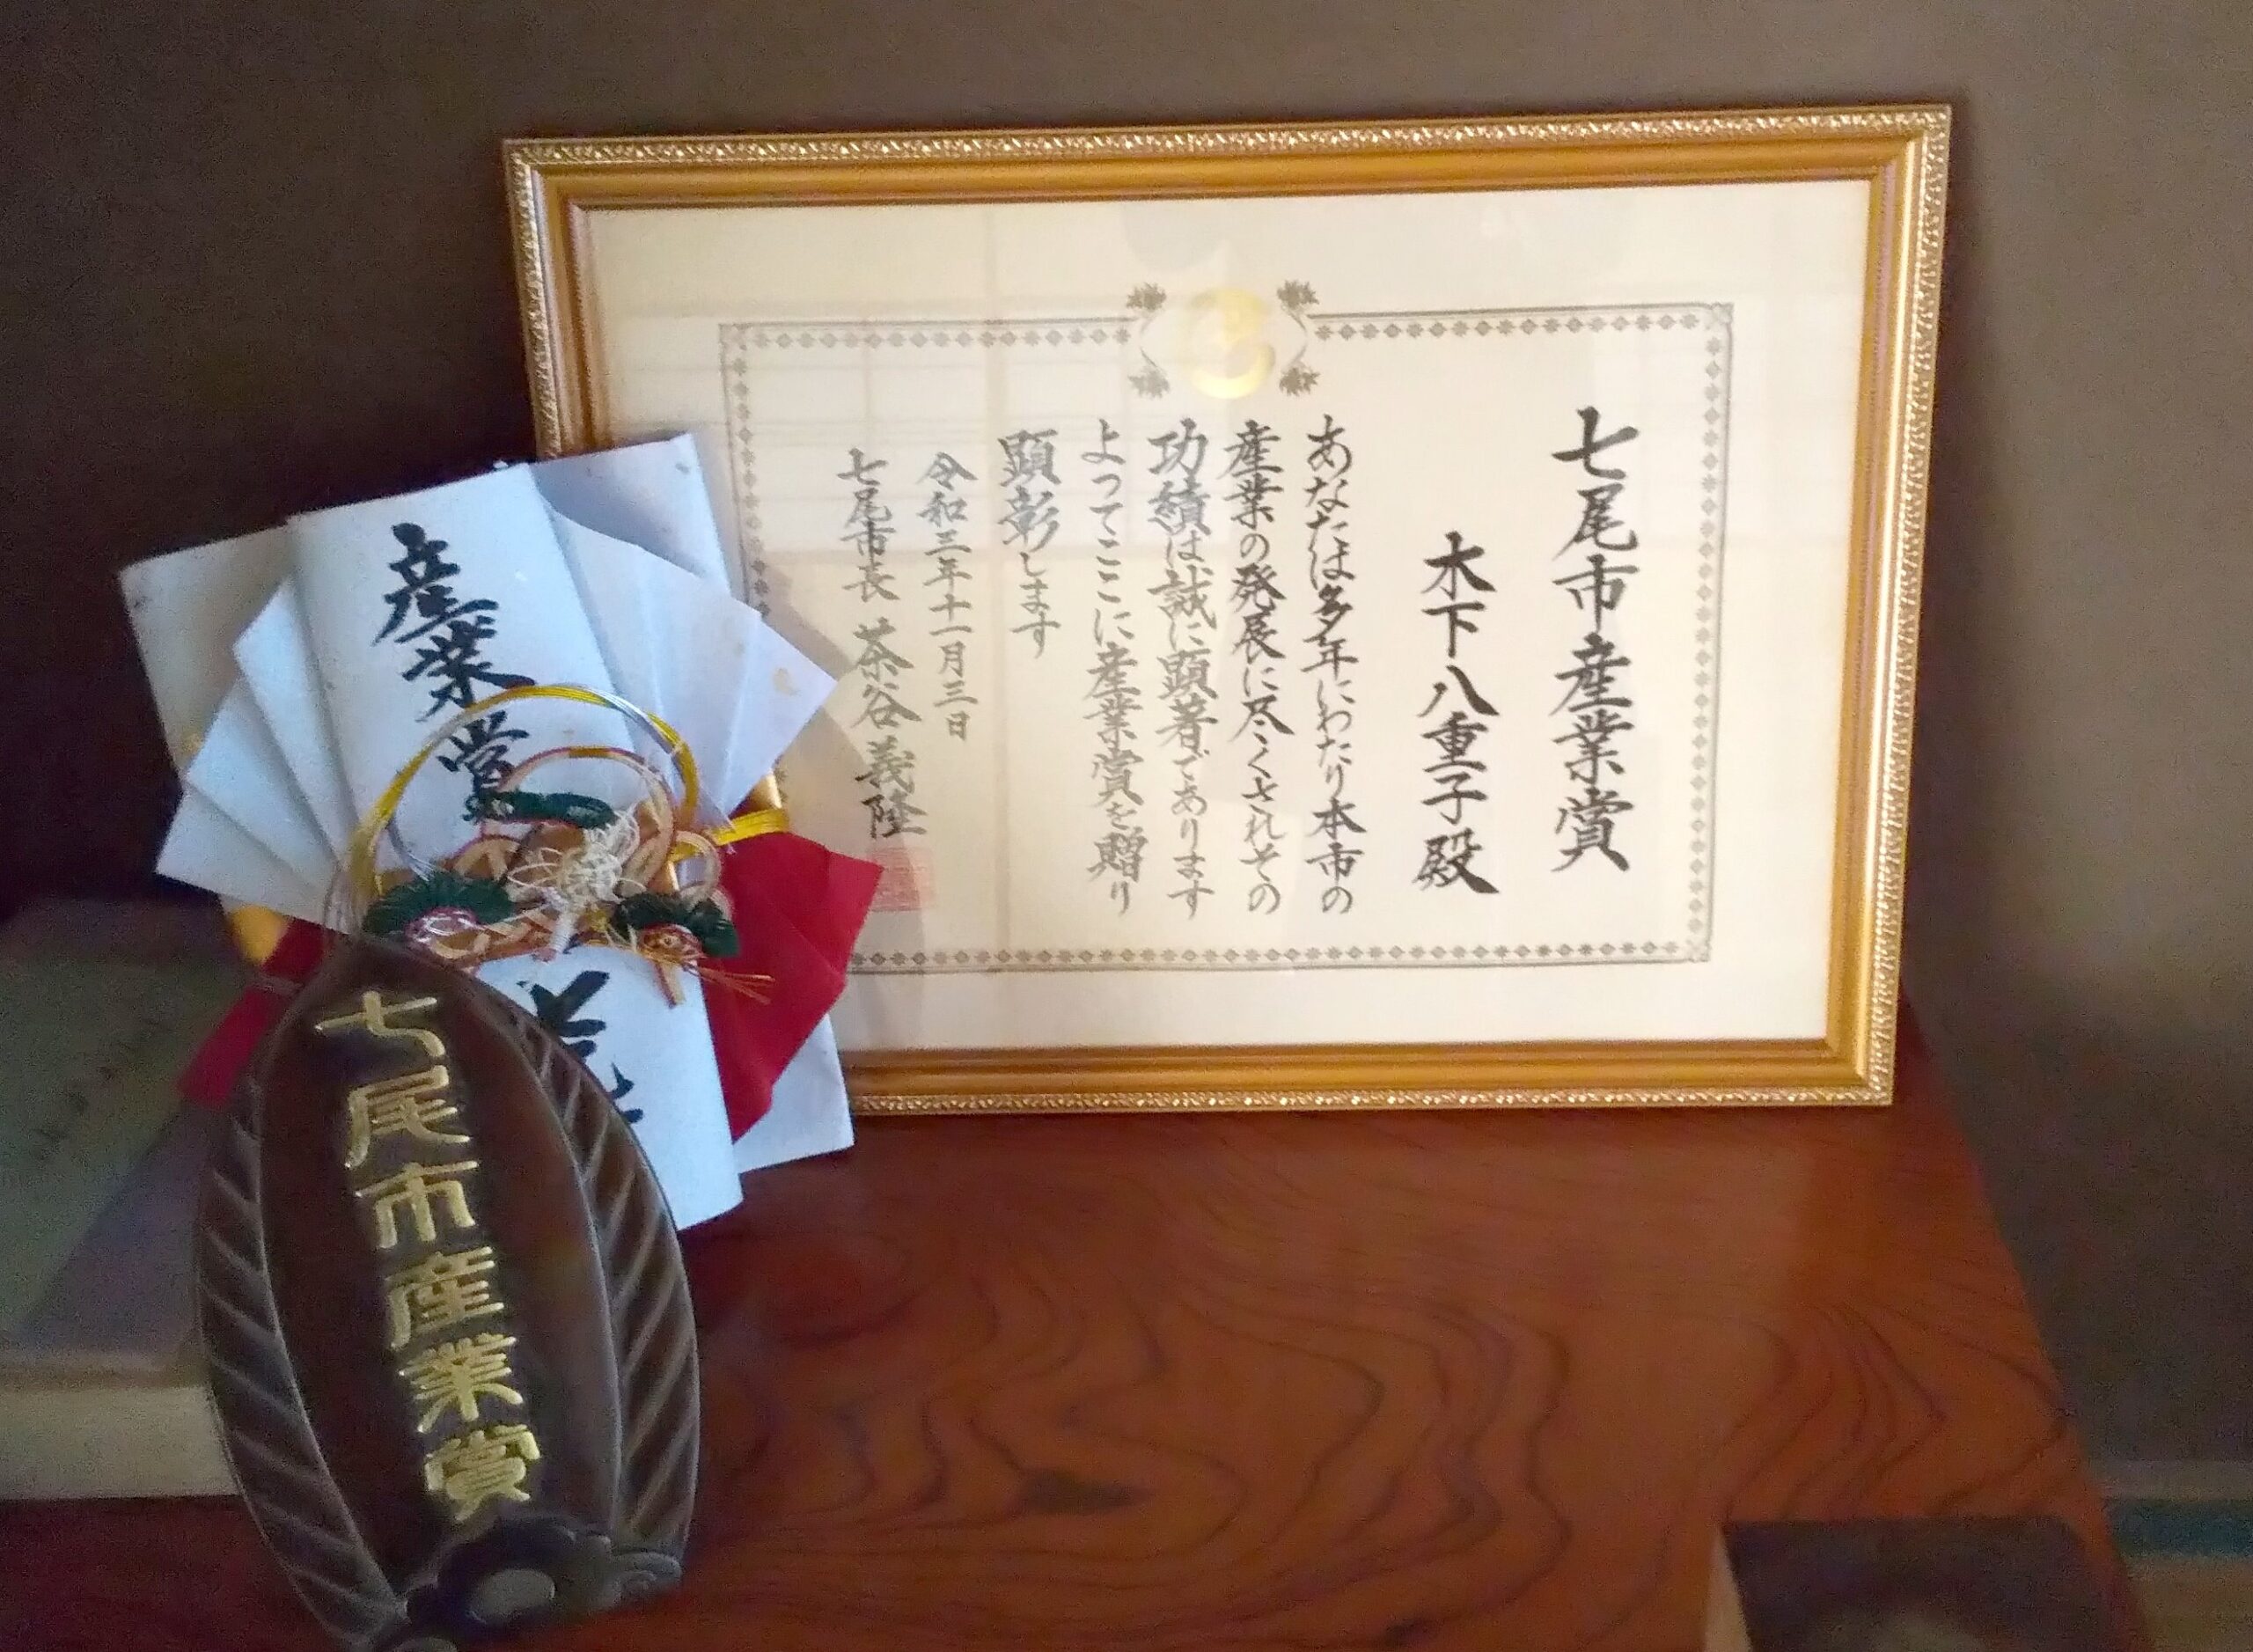 七尾市産業賞
木下八重子殿
あなたは多年にわたり本市の
産業の発展に尽くされその
功績は誠に顕著であります
よってここに産業賞を贈り
顕彰します
令和三年十一月三日
七尾市長 茶谷義隆
産業賞
七尾市産業賞